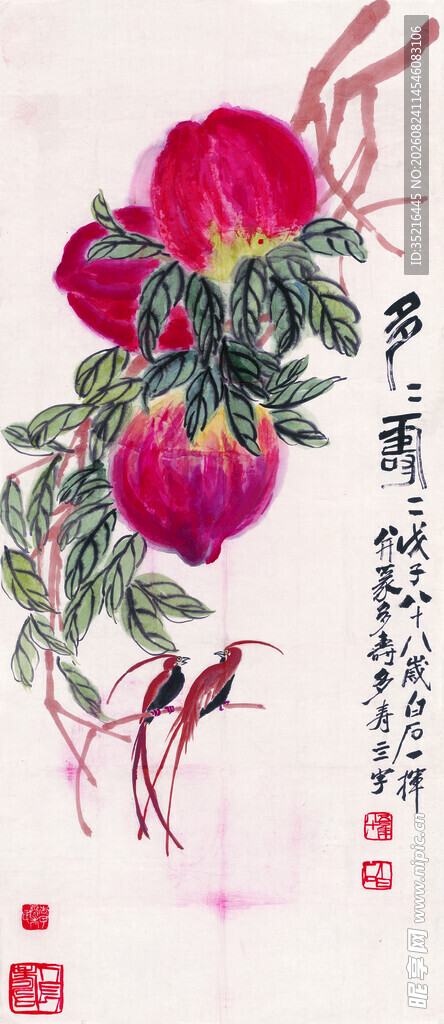 多〻壽〻
戊子八十八歲白石一揮
并篆多壽多壽三字
35216445 NO:20260824114546083106
昵享网 www.nipic.cn